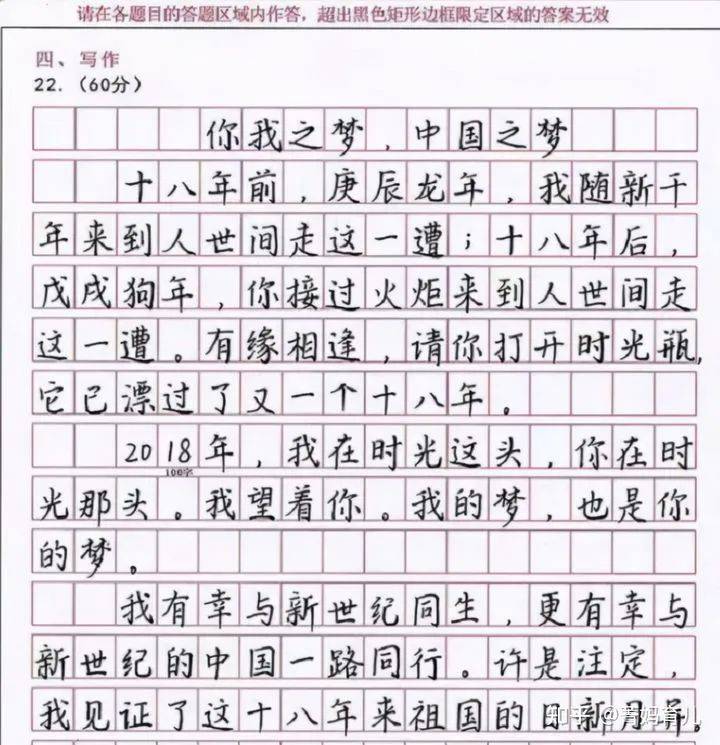 请在各题目的答题区域内作答，超出黑色矩形边框限定区域的答案无效
四、写作
22.（60分）
你我之梦，中国之梦
十八年前，庚辰龙年，我随新千
年来到人世间走这一遭；十八年后，
戊戌狗年，你接过火炬来到人世间走
这一遭。有缘相逢，请你打开时光瓶，
它已漂过了又一个十八年。
2018年，我在时光这头，你在时
100字
光那头。我望着你。我的梦，也是你
的梦。
我有幸与新世纪同生，更有幸与
新世纪的中国一路同行。许是注定，
我见证了这十八年来祖国的日新月异。
知乎 @菁妈育儿